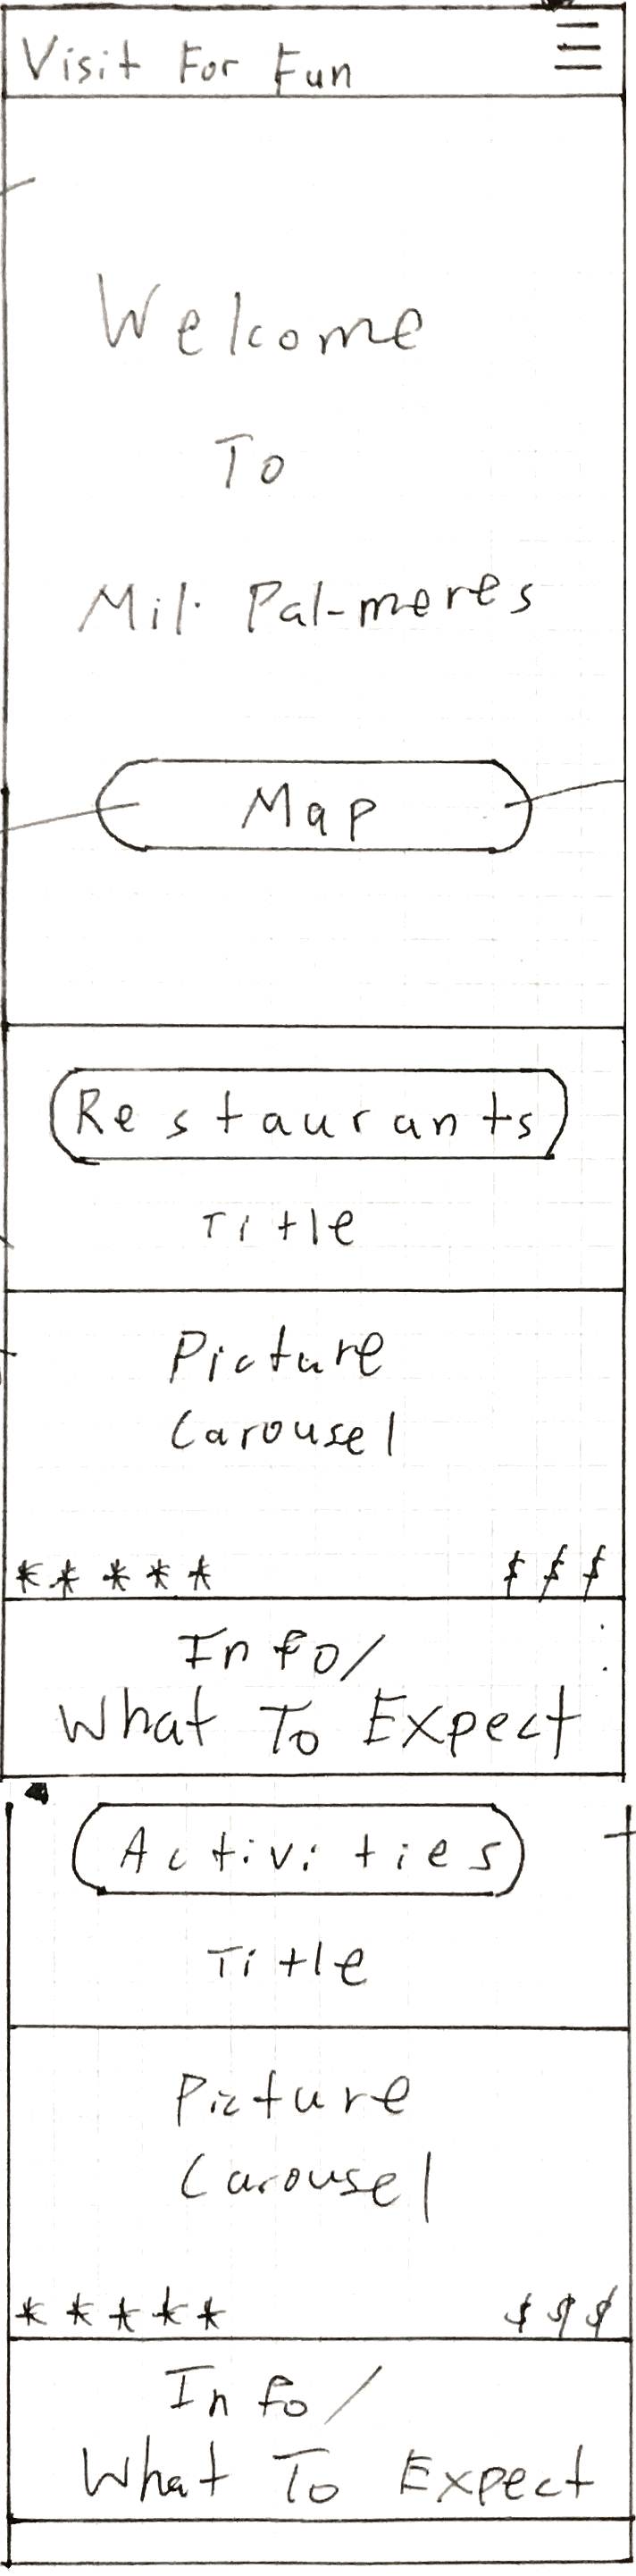 Visit For Fun
Welcome
To
Mil. Pal-meres
Map
Restaurants
Title
Picture
Carousel
* * * * * $ $ $
Info/
What To Expect
Activities
Title
Picture
Carousel
* * * * * $ $ $
Info/
What To Expect